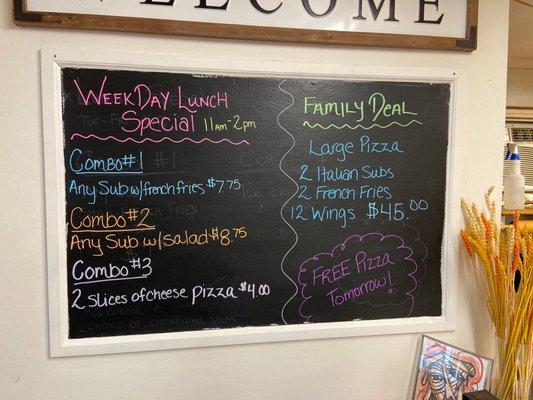 WELCOME
WeekDay Lunch
Special 11am-2pm
Combo#1
Any Sub w/french fries $7.75
Combo#2
Any Sub w/salad $8.75
Combo#3
2 slices of cheese pizza $4.00
Family Deal
Large Pizza
2 Italian Subs
2 French Fries
12 Wings $45.00
FREE Pizza
Tomorrow!